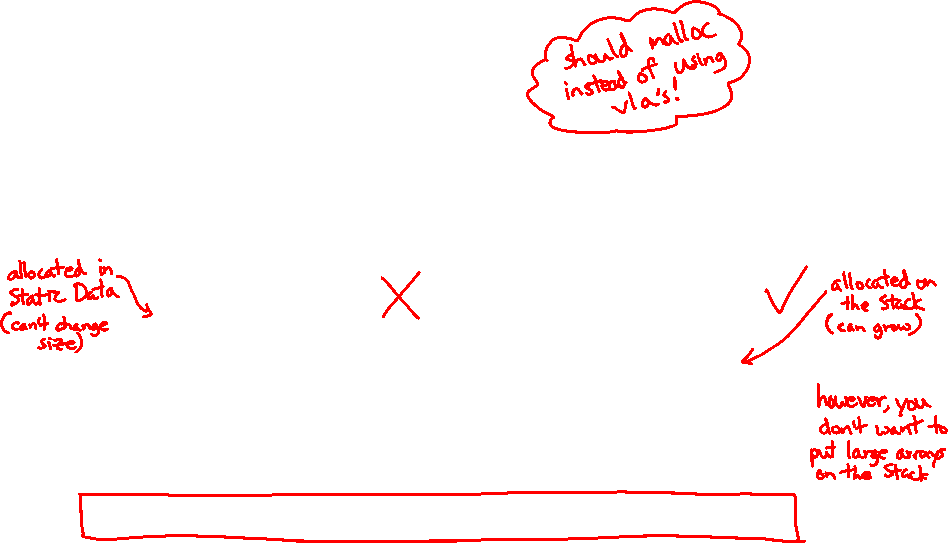 should malloc
instead of using
vla's!
allocated in
Static Data
(can't change
size)
allocated on
the Stack
(can grow)
however, you
don't want to
put large arrays
on the Stack